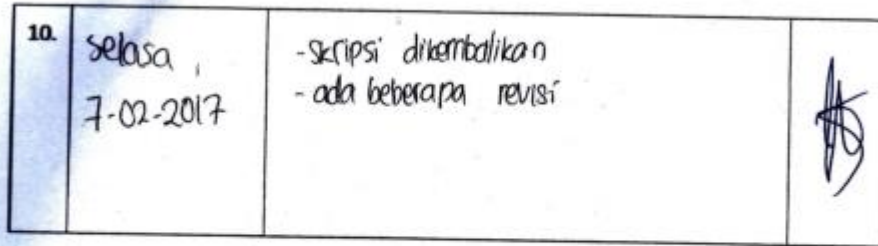 10.
selasa,
7-02-2017
- skripsi dikembalikan
- ada beberapa revisi